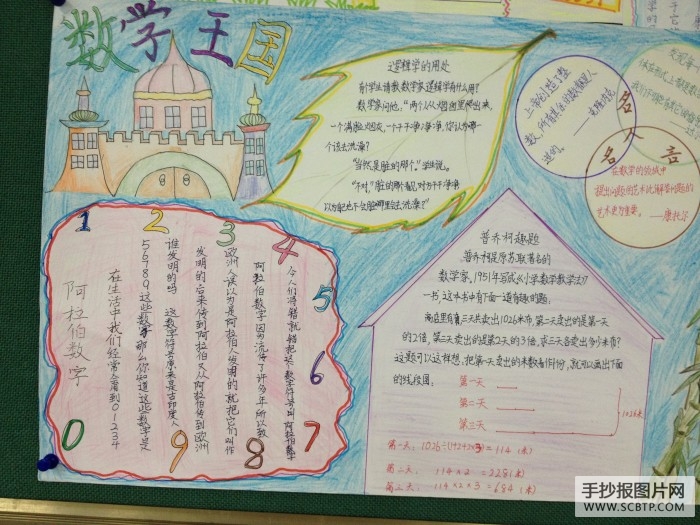 数学王国
逻辑学的用处
有个学生请教数学家逻辑学有什么用?
数学家问他:“两个人从烟囱里爬出来,
一个满脸烟灰,一个干干净净,你认为哪一
个该去洗澡?”
“当然是脏的那个。”学生说。
“不对,脏的那个看见对方干干净净
以为
上帝创造了整
数,所有其余的数都是人
造的。
——克隆内克
名人名言
在数学的领域中
提出问题的艺术比解答问题的
艺术更为重要。
——康托尔
1
2
3
4
5
6
7
8
9
0
阿拉伯数字
在生活中我们经常会看到01234
56789这些数字那么你知道这些数字是
谁发明的吗 这数字符号原来是古印度人
发明的后来传到阿拉伯又从阿拉伯传到欧洲
欧洲人误以为是阿拉伯人发明的就把它们叫作
阿拉伯数字因为流传了许多年所以教
令人们将错就错把这数字符号叫阿拉伯数字
普乔柯趣题
普乔柯是原苏联著名的
数学家。1951年写成《小学数学教学法》
一书,这本书中有下面一道有趣的题:
商店里有三天共卖出1026米布,第二天卖出的是第一天
的2倍,第三天卖出的是第2天的3倍,求三天各卖出多少米布?
这题可以这样想,把第一天卖出的米数看作1份,就可以画出下面
的线段图:
第一天
第二天
第三天
1026米
第一天:1026÷(1+2+2×3)=114(米)
第二天:114×2=228(米)
第三天:114×2×3=684(米)
手抄报图片网
WWW.SCBTP.COM